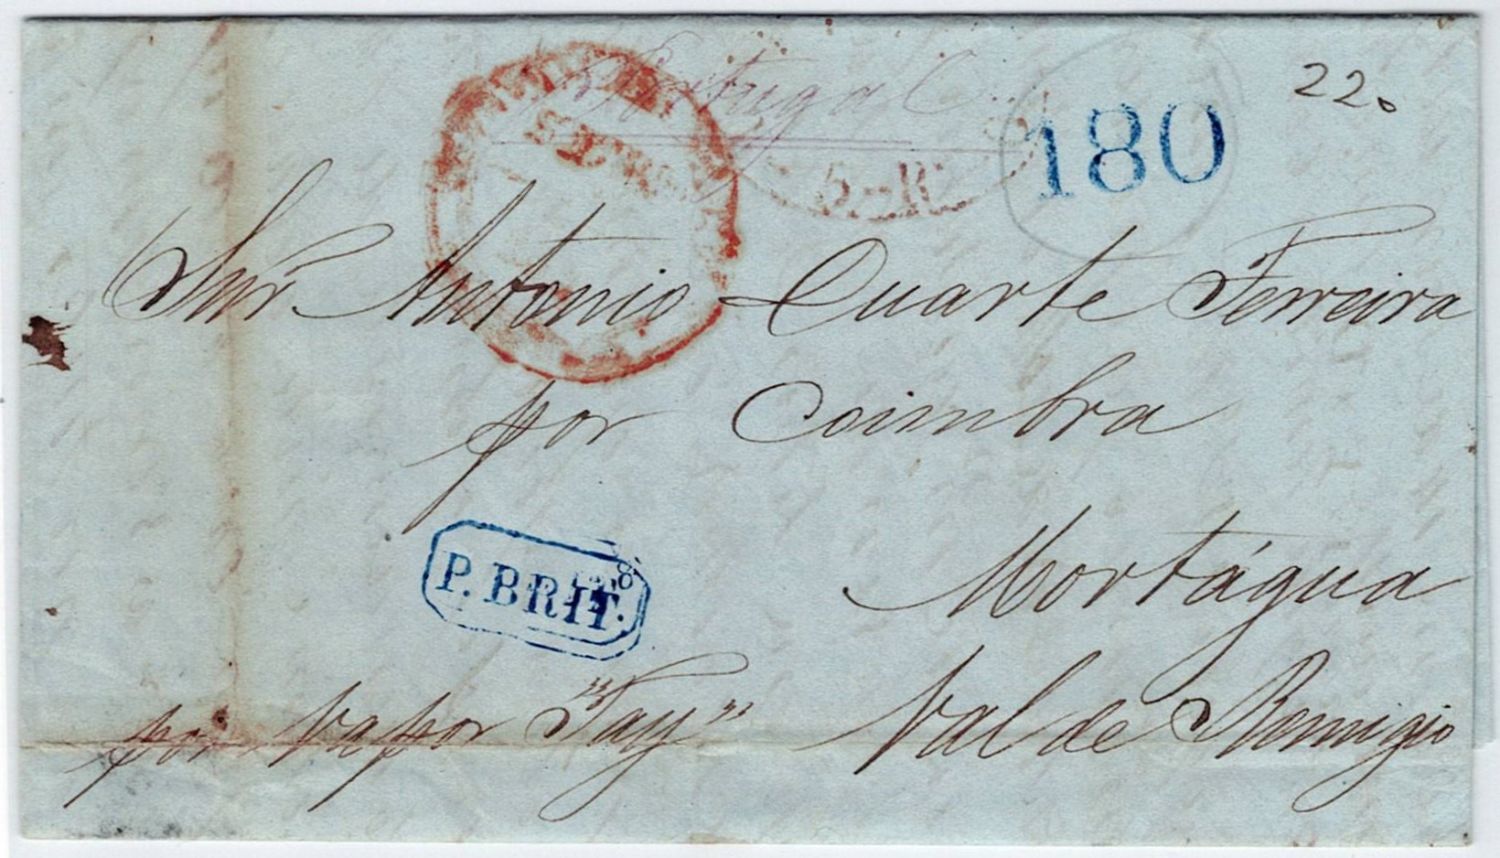 Portugal
220
180
Snr Antonio Duarte Ferreira
por Coimbra
P. BRIT.
Mortágua
por vapor "Tay" Val de Remigio